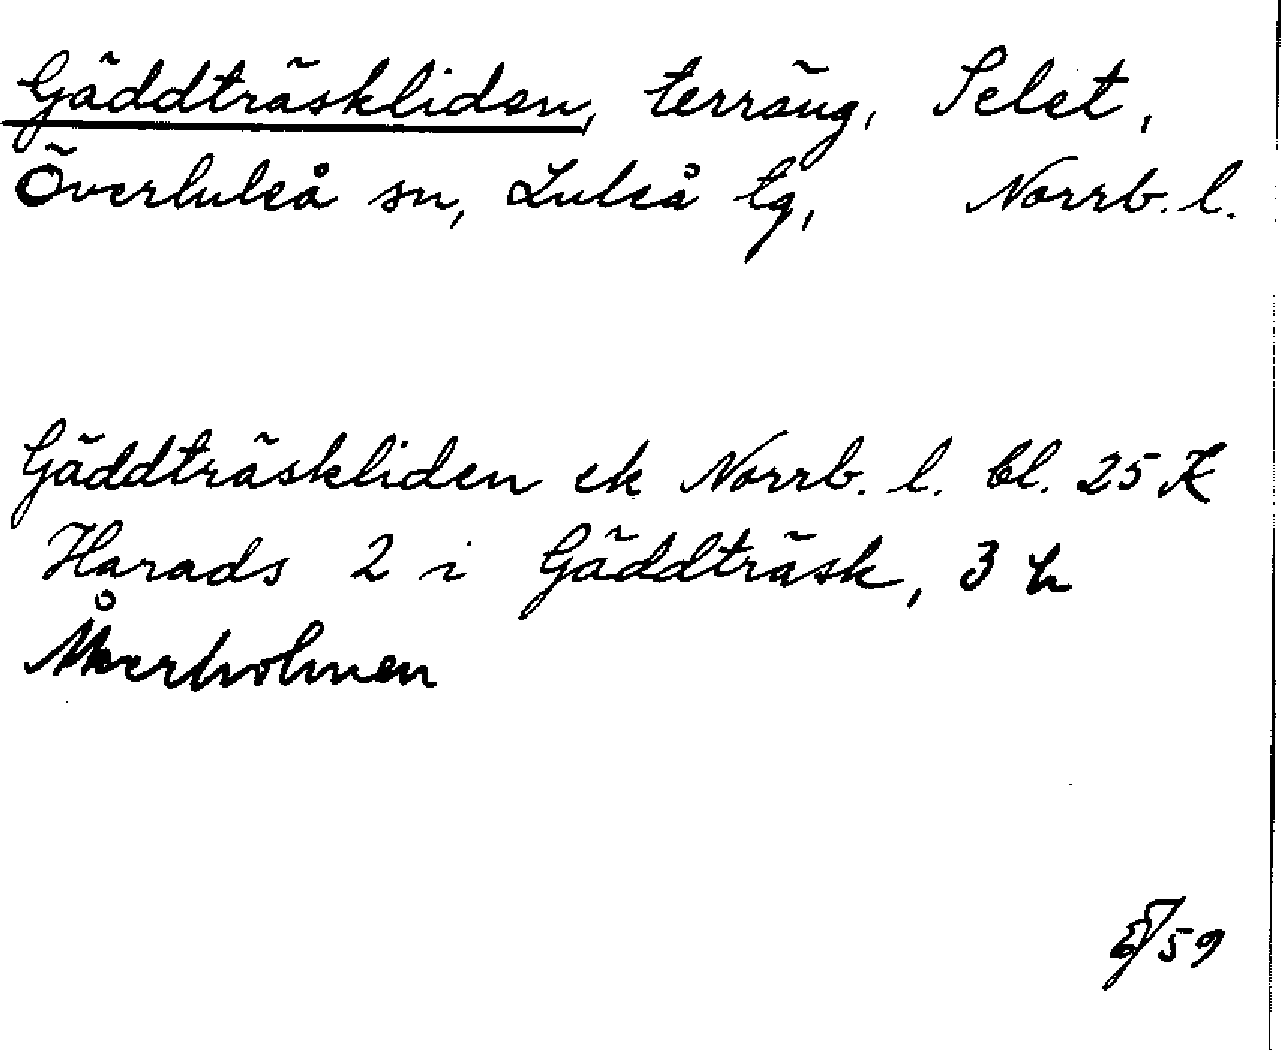 Gäddträskliden, terräng, Selet,
Överluleå sn, Luleå lg, Norrb. l.
Gäddträskliden ek Norrb. l. bl. 25 K
Harads 2 i Gäddträsk, 3 h
Åkerholmen
59